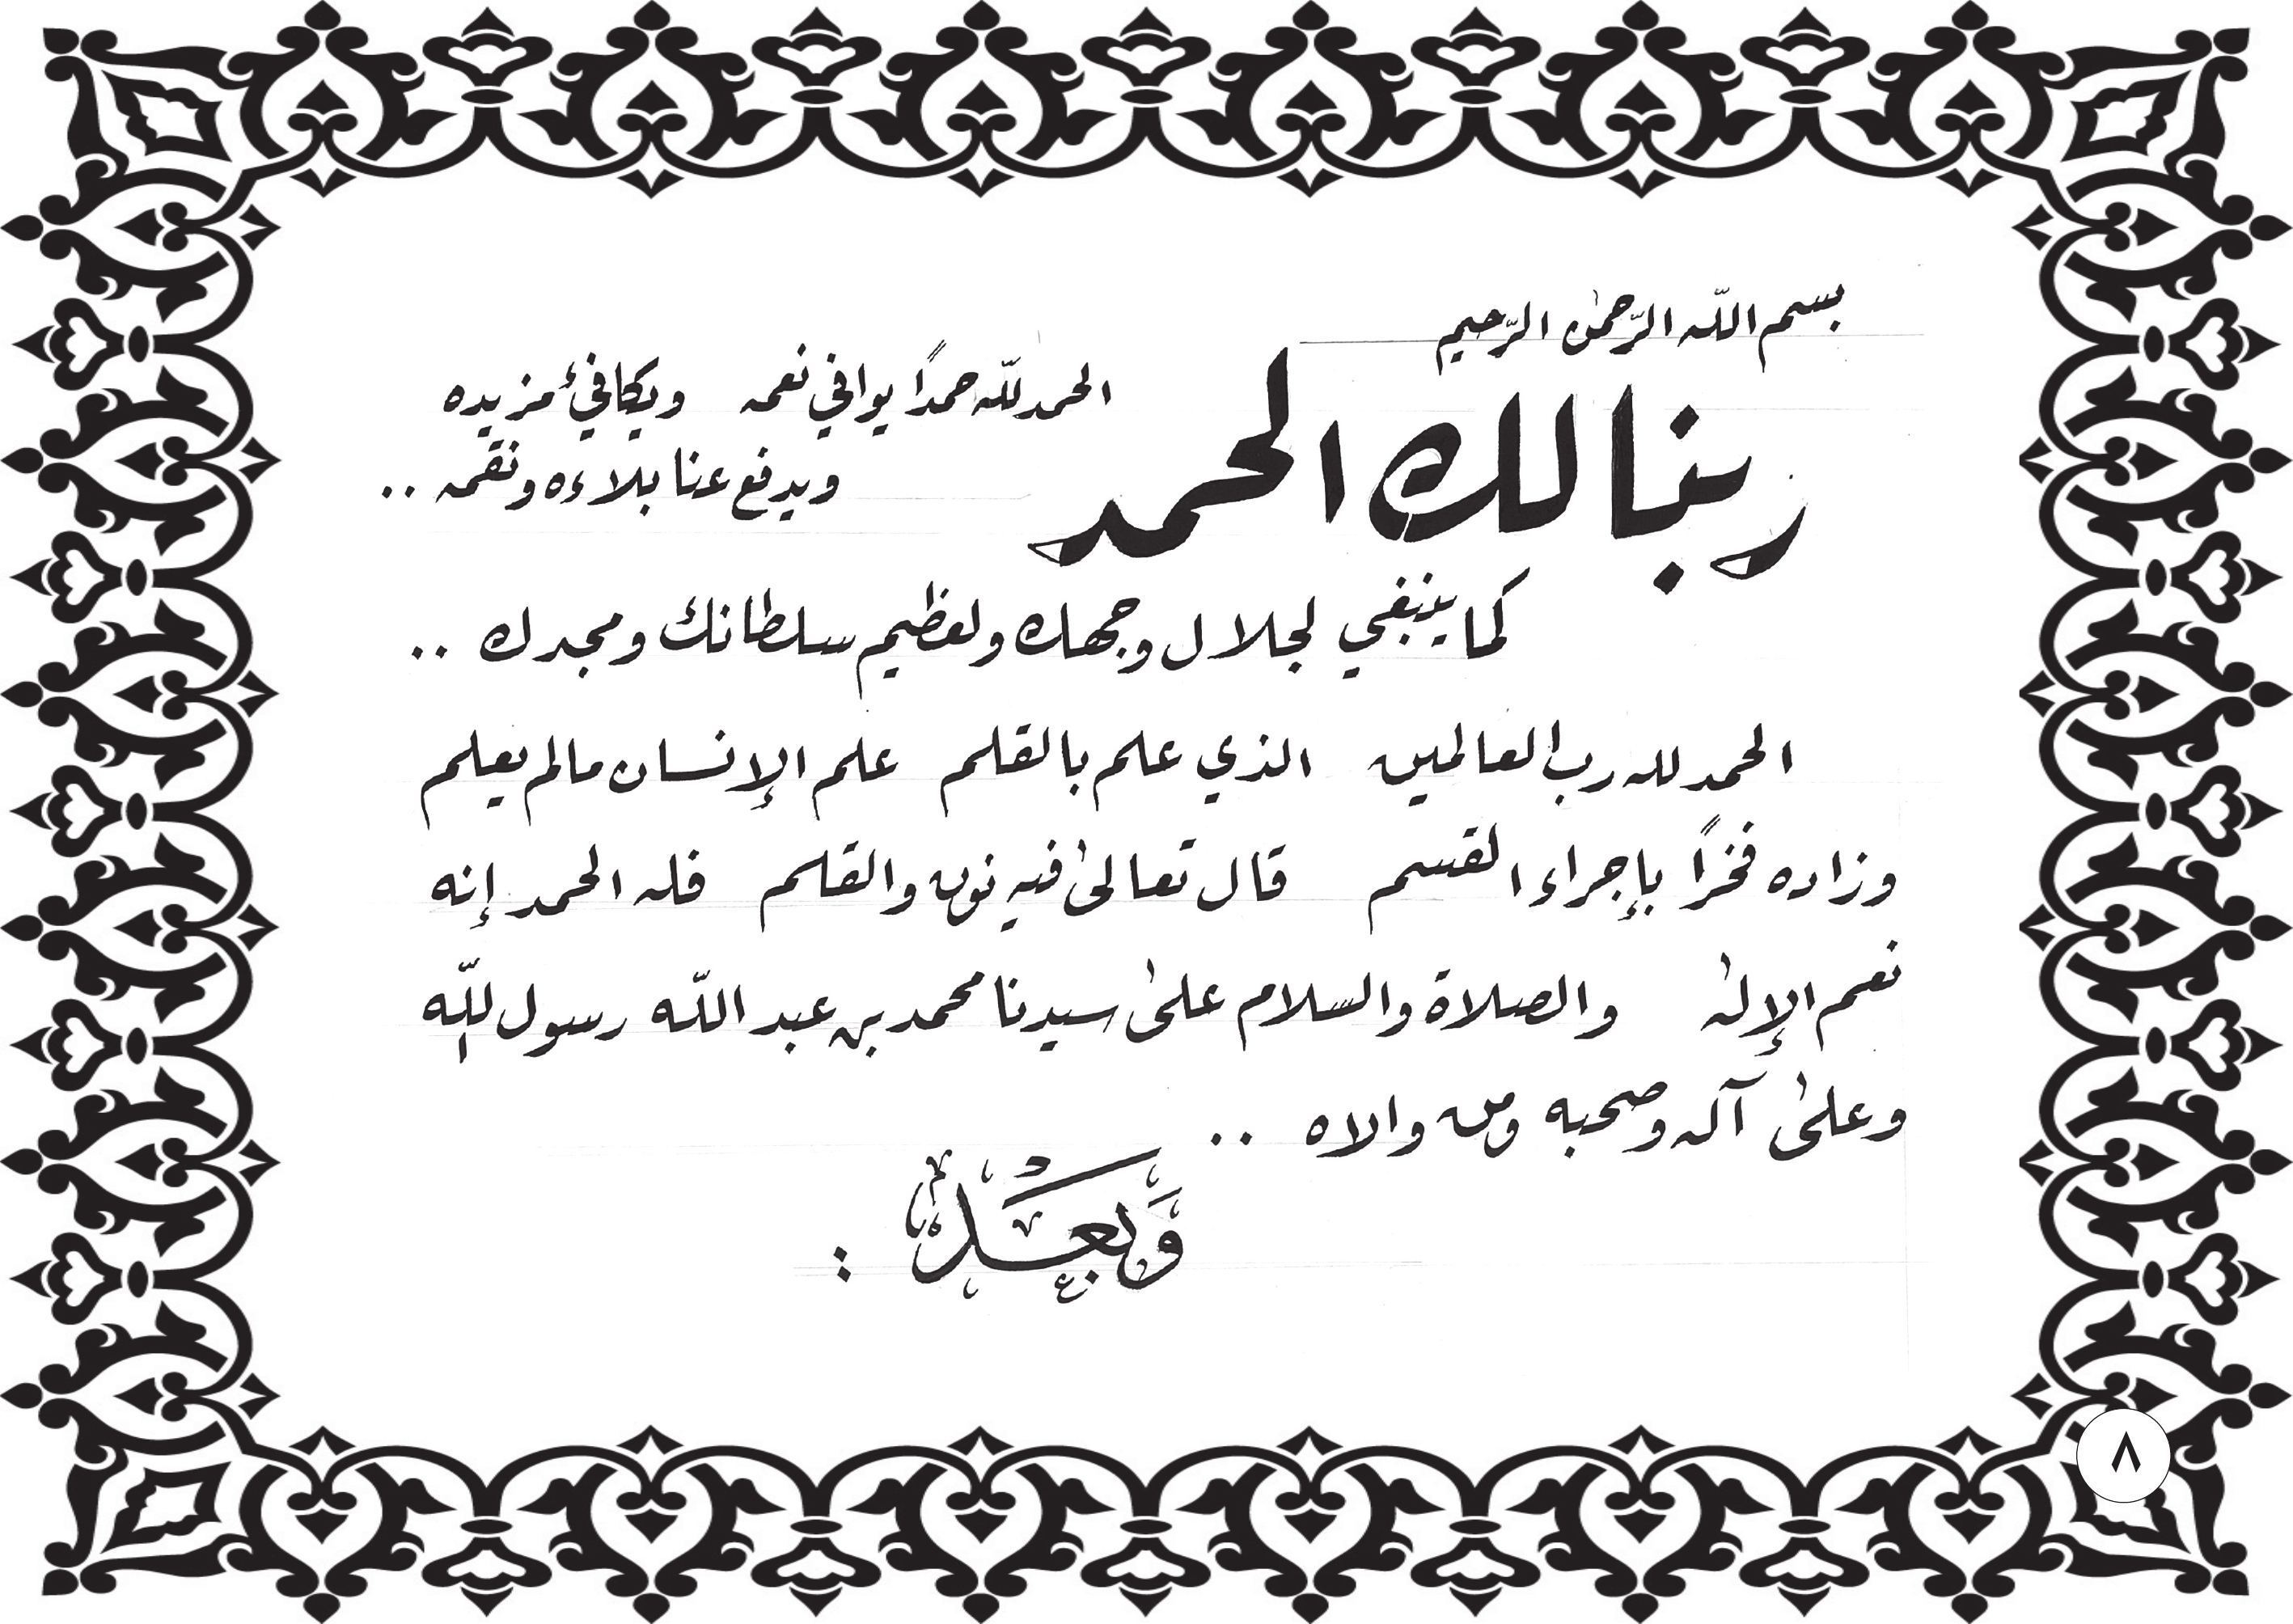 بسم اللّه الرّحمٰن الرّحيم
ربنا لك الحمد
الحمد للّه حمدًا يوافي نعمه ويكافئ مزيده
ويدفع عنا بلاءه ونقمه ..
كما ينبغي لجلال وجهك ولعظيم سلطانك ومجدك ..
الحمد لله رب العالمين الذي علم بالقلم علم الإنسان مالم يعلم
وزاده فخرًا بإجراء القسم قال تعالىٰ فيه نون والقلم فله الحمد إنه
نعم الإلٰه والصلاة والسلام علىٰ سيدنا محمد بن عبد اللّه رسول اللّه
وعلىٰ آله وصحبه ومن والاه ..
وَبَعْدُ :
٨